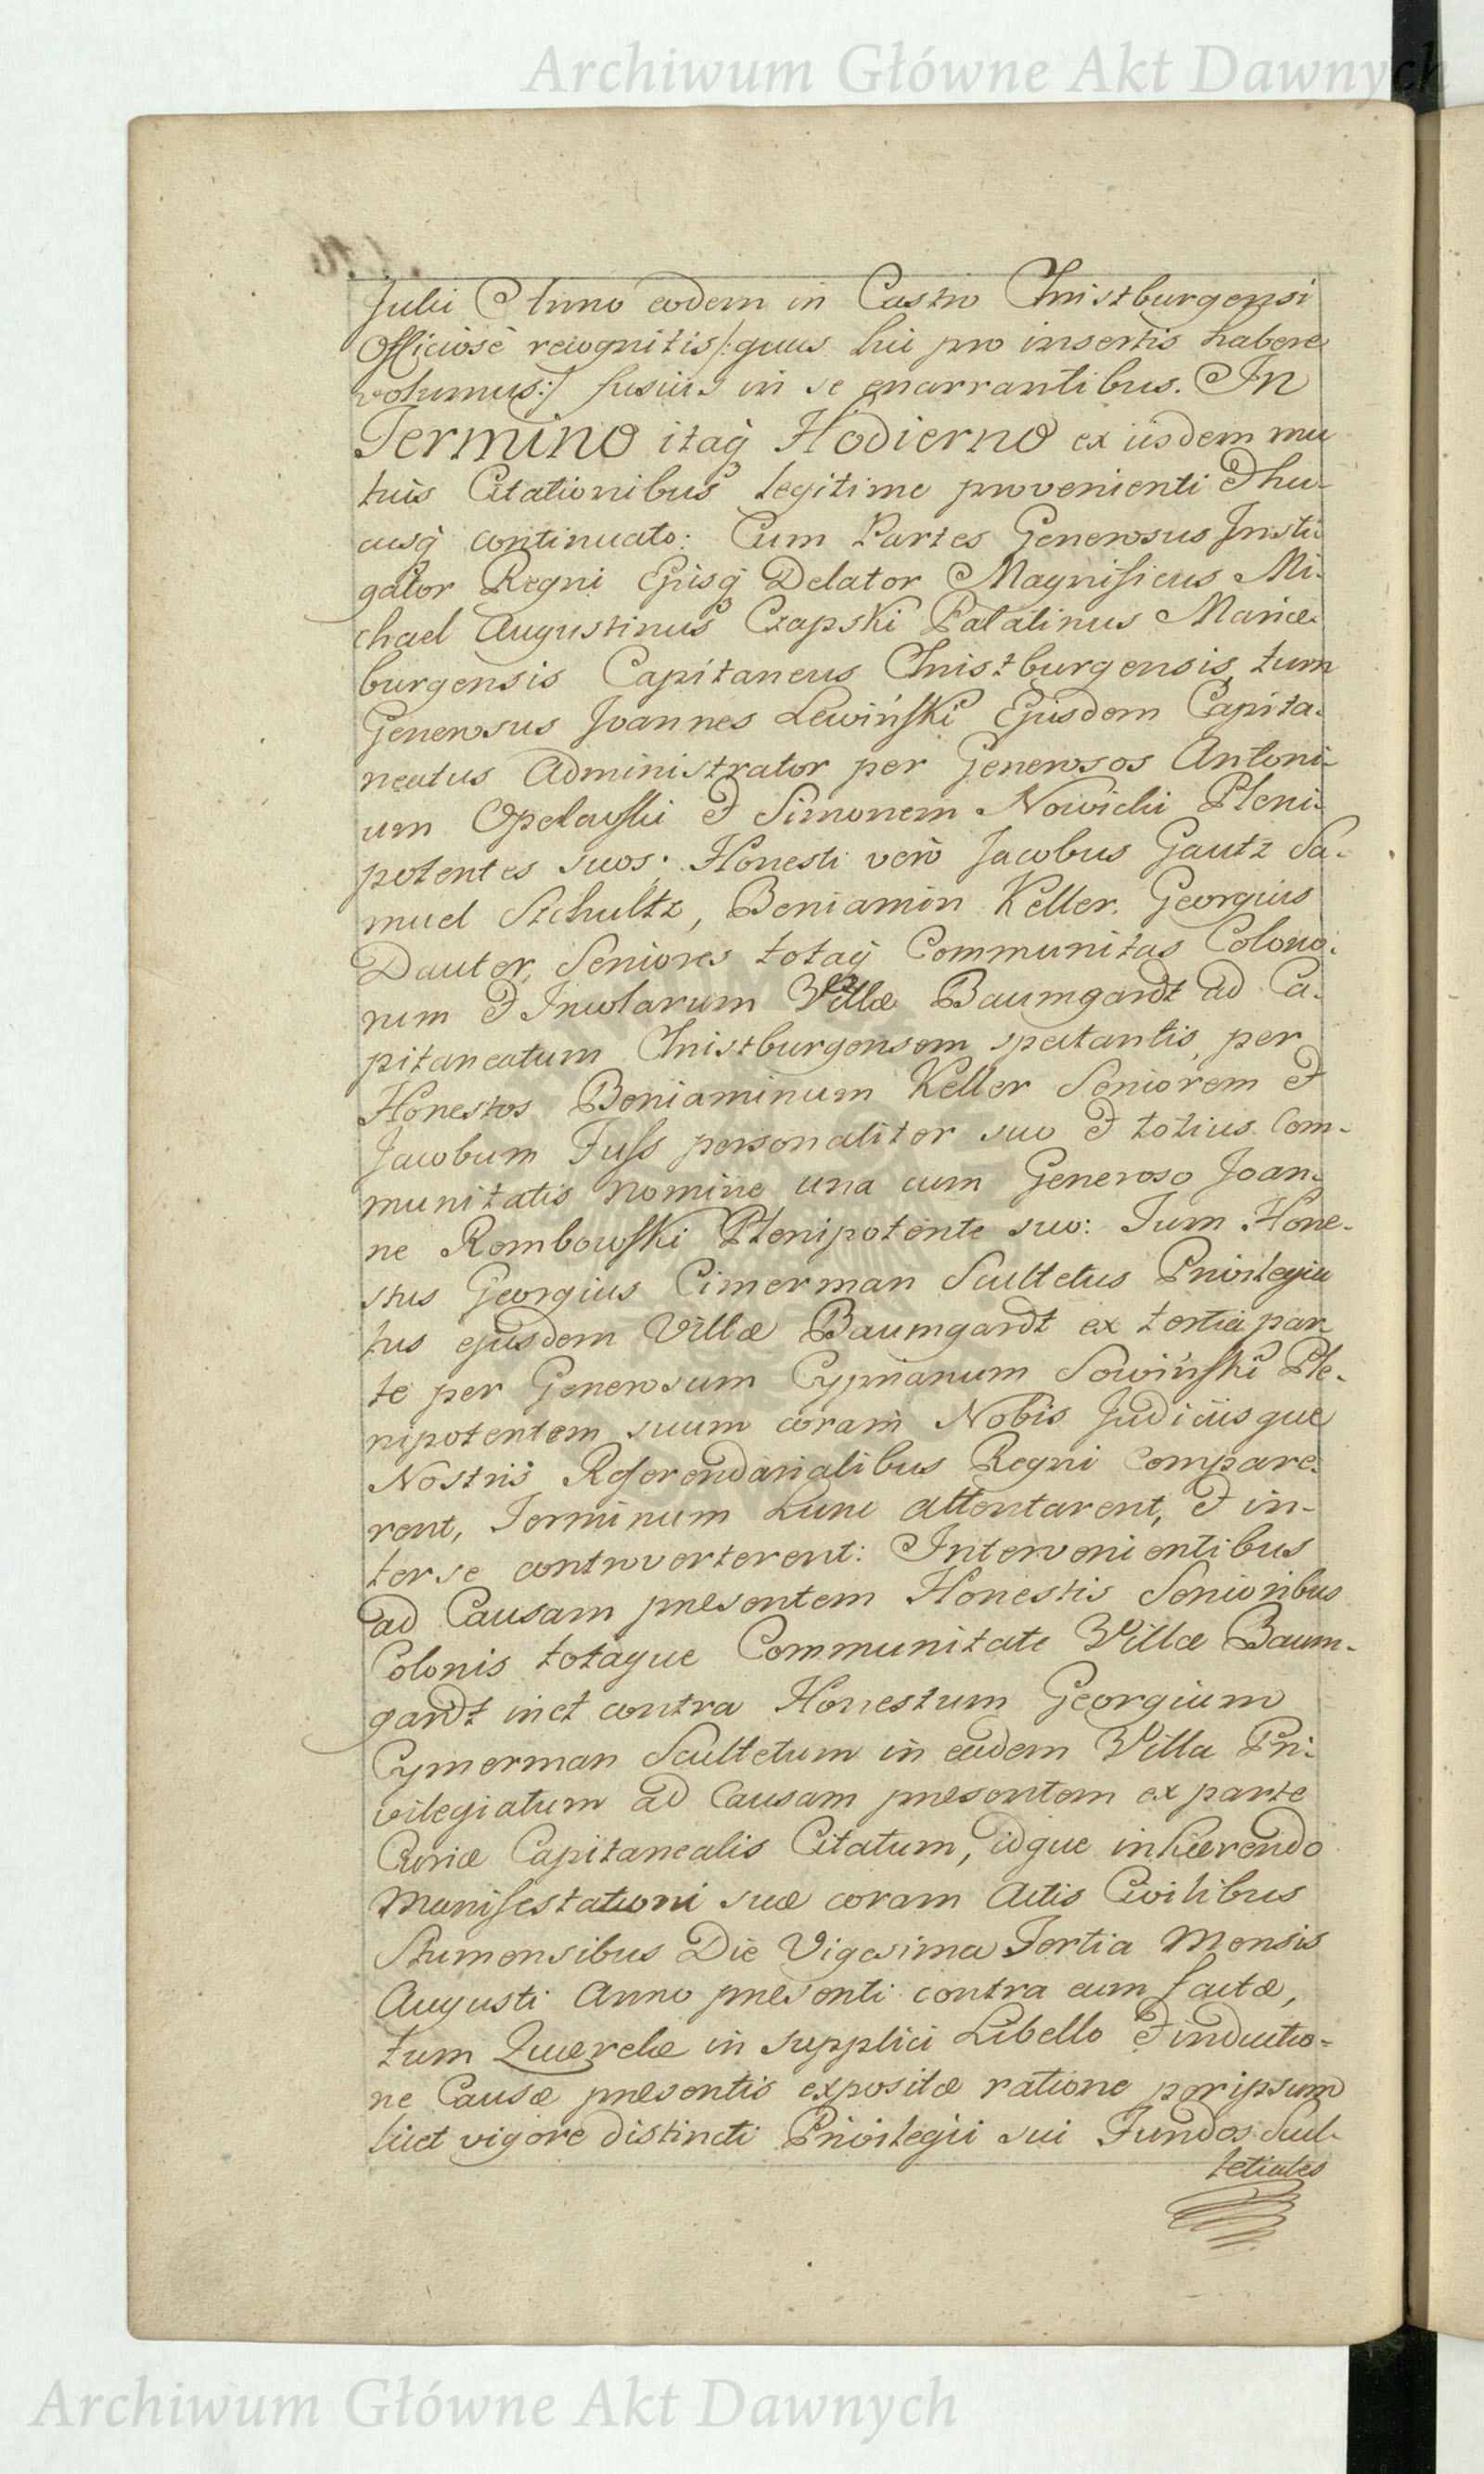 Archiwum Główne Akt Dawnych
Julii Anno eodem in Castro Christburgensi
Officiose recognitis /: quas hic pro insertis habere
volumus :/ fusius in se enarrantibus. In
Termino itaq Hodierno ex iisdem mu
tuis Citationibus legitime provenienti & hu-
cusq continuato: Cum Partes Generosus Insti
gator Regni Ejusq Delator Magnificus Mi-
chael Augustinus Czapski Palatinus Mariæ-
burgensis Capitaneus Christburgensis, tum
Generosus Joannes Lewiński Ejusdem Capita-
neatus Administrator per Generosos Antoni-
um Opelawski & Simonem Nowicki Pleni-
potentes suos; Honesti vero Jacobus Gautz Sa-
muel Szchultz, Beniamin Keller, Georgius
Dauter, Seniores totaq Communitas Colono-
rum & Incolarum Villæ Baumgardt ad Ca-
pitaneatum Christburgensem spectantis, per
Honestos Beniaminum Keller Seniorem &
Jacobum Fuss personaliter suo & totius Com-
munitatis nomine una cum Generoso Joan-
ne Rembowski Plenipotente suo: Tum Hone-
stus Georgius Cimerman Scultetus Privilegia
tus ejusdem Villæ Baumgardt ex tertia par
te per Generosum Cyprianum Sowiński Ple-
nipotentem suum coram Nobis Judiciisque
Nostris Referendarialibus Regni Compare-
rent, Terminum hunc attentarent, & in-
ter se controverterent: Intervenientibus
ad Causam præsentem Honestis Senioribus
Colonis totaque Communitate Villæ Baum-
gardt in et contra Honestum Georgium
Cymerman Scultetum in eadem Villa Pri-
vilegiatum ad Causam præsentem ex parte
Curiæ Capitanealis Citatum, idque inhærendo
Manifestationi suæ coram Actis Civilibus
Stumensibus Die Vigesima Tertia Mensis
Augusti Anno præsenti contra eum factæ,
tum Querelæ in supplici Libello & inductio-
ne Causæ præsentis expositæ ratione per ipsum
licet vigore distincti Privilegii sui Fundos Scul-
tetiales
Archiwum Główne Akt Dawnych